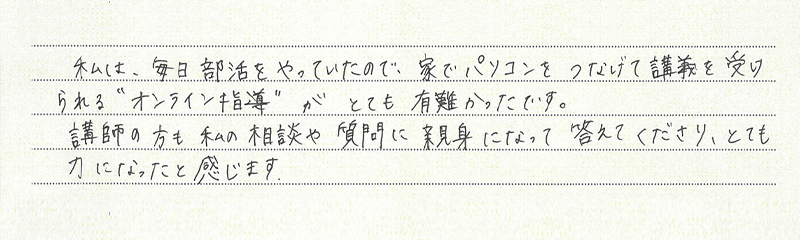 私は、毎日部活をやっていたので、家でパソコンをつなげて講義を受け
られる"オンライン指導"がとても有難かったです。
講師の方も私の相談や質問に親身になって答えてくださり、とても
力になったと感じます.